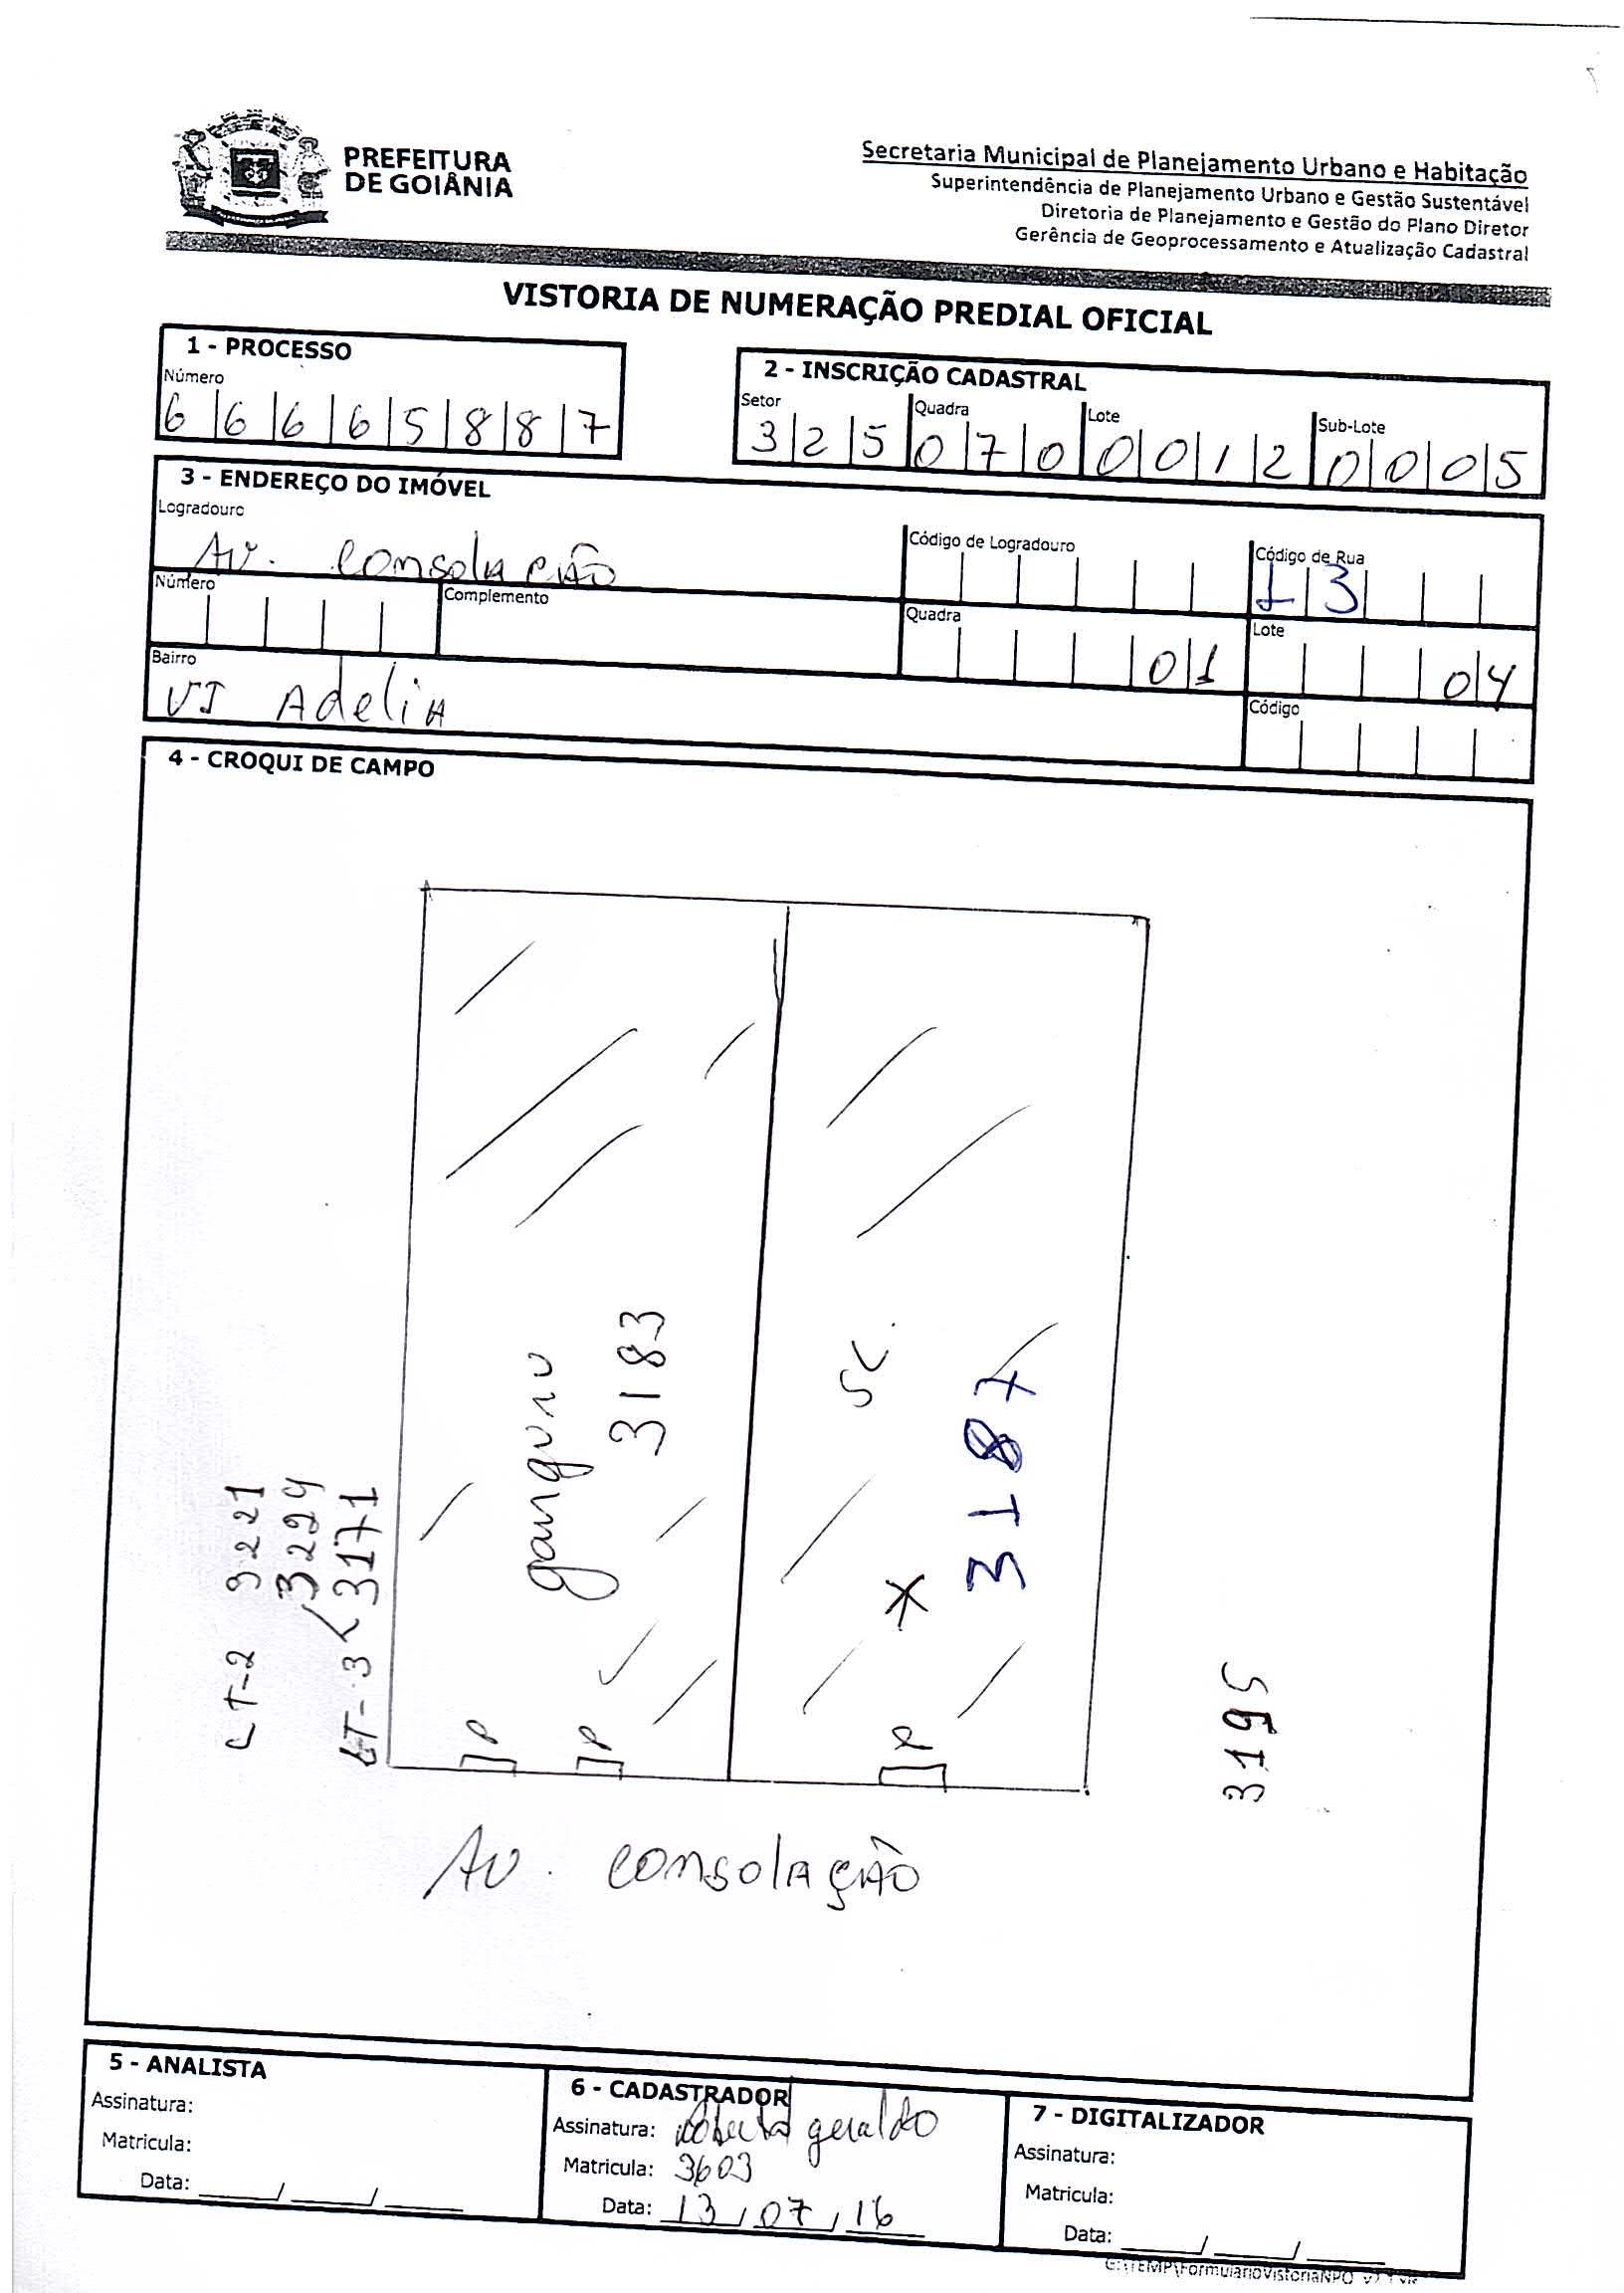 PREFEITURA
DE GOIÂNIA
Secretaria Municipal de Planejamento Urbano e Habitação
Superintendência de Planejamento Urbano e Gestão Sustentável
Diretoria de Planejamento e Gestão do Plano Diretor
Gerência de Geoprocessamento e Atualização Cadastral
VISTORIA DE NUMERAÇÃO PREDIAL OFICIAL
1 - PROCESSO
Número
66665887
2 - INSCRIÇÃO CADASTRAL
Setor Quadra Lote Sub-Lote
325 070 0012 0005
3 - ENDEREÇO DO IMÓVEL
Logradouro Código de Logradouro Código de Rua
Av. Consolação 13
Número Complemento Quadra Lote
01 04
Bairro Código
VI Adelia
4 - CROQUI DE CAMPO
LT-2 3221
3229
LT-3 3171
3183
SC.
* 3187
3195
P P P
Av. Consolação
5 - ANALISTA
Assinatura:
Matricula:
Data: ____/____/____
6 - CADASTRADOR
Assinatura: Roberto geraldo
Matricula: 3603
Data: 13/07/16
7 - DIGITALIZADOR
Assinatura:
Matricula:
Data: ____/____/____